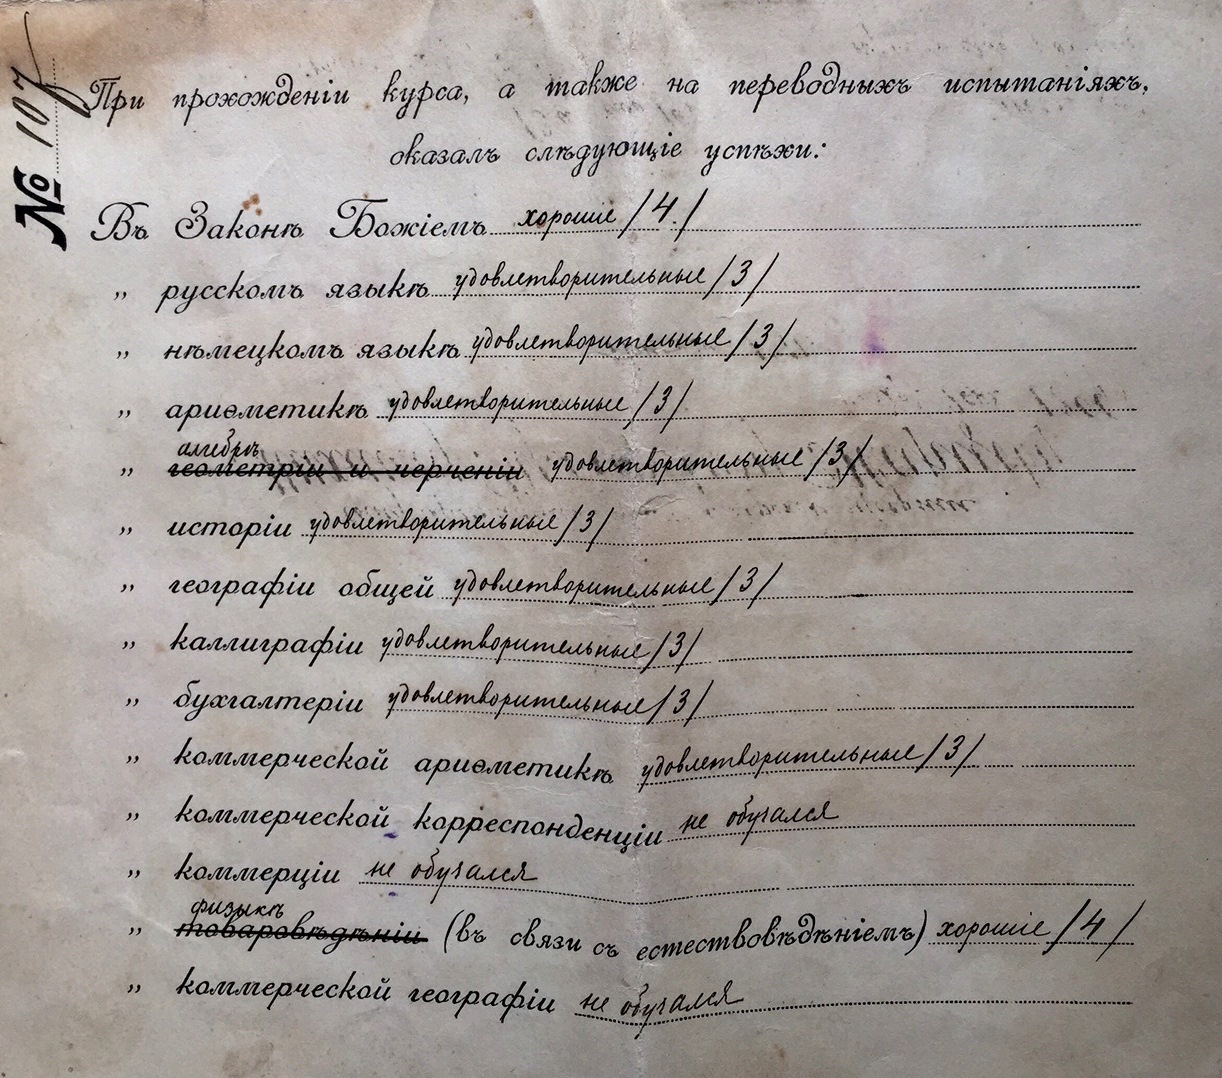 № 107
При прохожденіи курса, а также на переводныхъ испытаніяхъ,
оказалъ слѣдующіе успѣхи:
Въ Законѣ Божіемъ хорошіе /4./
„ русскомъ языкѣ удовлетворительные /3/
„ нѣмецкомъ языкѣ удовлетворительные /3/
„ ариѳметикѣ удовлетворительные /3/
алгебрѣ
„ геометріи и черченіи удовлетворительные /3/
„ исторіи удовлетворительные /3/
„ географіи общей удовлетворительные /3/
„ каллиграфіи удовлетворительные /3/
„ бухгалтеріи удовлетворительные /3/
„ коммерческой ариѳметикѣ удовлетворительные /3/
„ коммерческой корреспонденціи не обучался
„ коммерціи не обучался
физикѣ
„ товаровѣдѣніи (въ связи съ естествовѣдѣніемъ) хорошіе /4/
„ коммерческой географіи не обучался